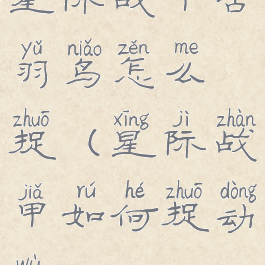 yǔ niǎo zěn me
羽鸟怎么
zhuō xīng jì zhàn
捉（星际战
jiǎ rú hé zhuō dòng
甲如何捉动
wù